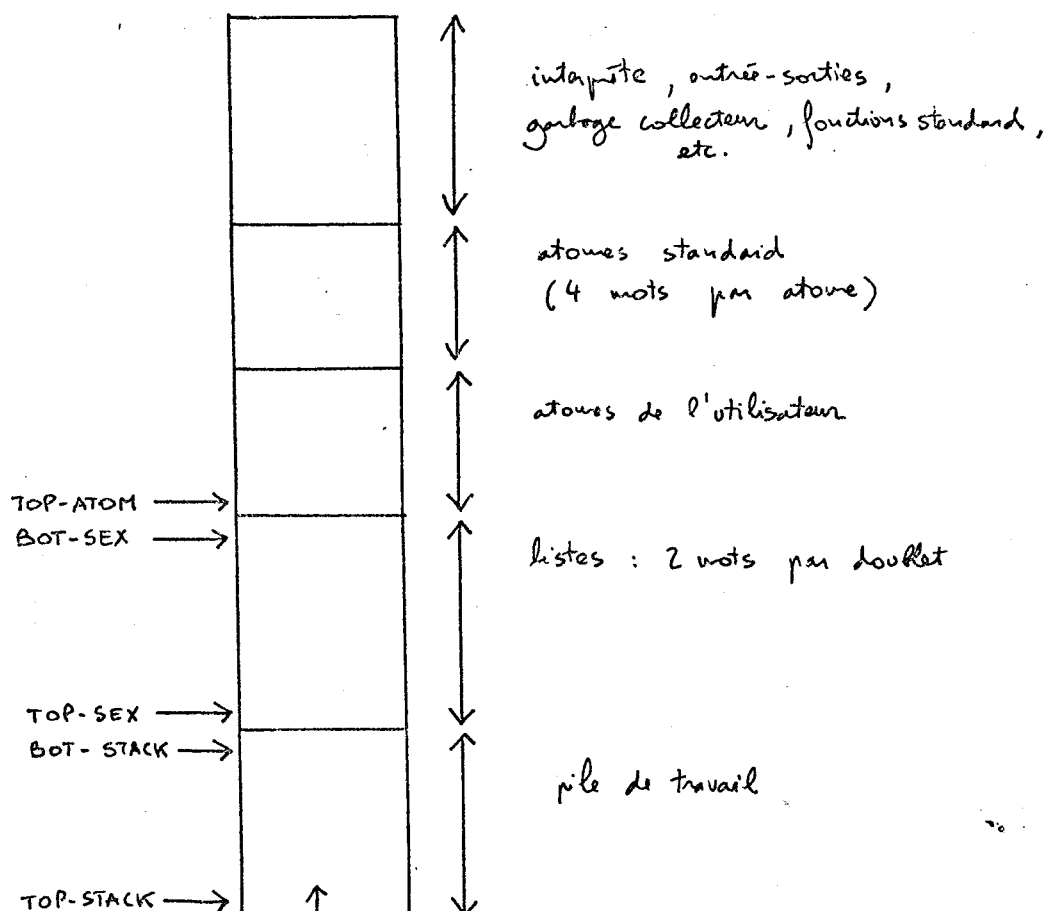 interprète, entrée-sorties,
garbage collecteur, fonctions standard,
etc.
atomes standard
(4 mots par atome)
atomes de l'utilisateur
TOP-ATOM
BOT-SEX
listes : 2 mots par doublet
TOP-SEX
BOT-STACK
pile de travail
TOP-STACK